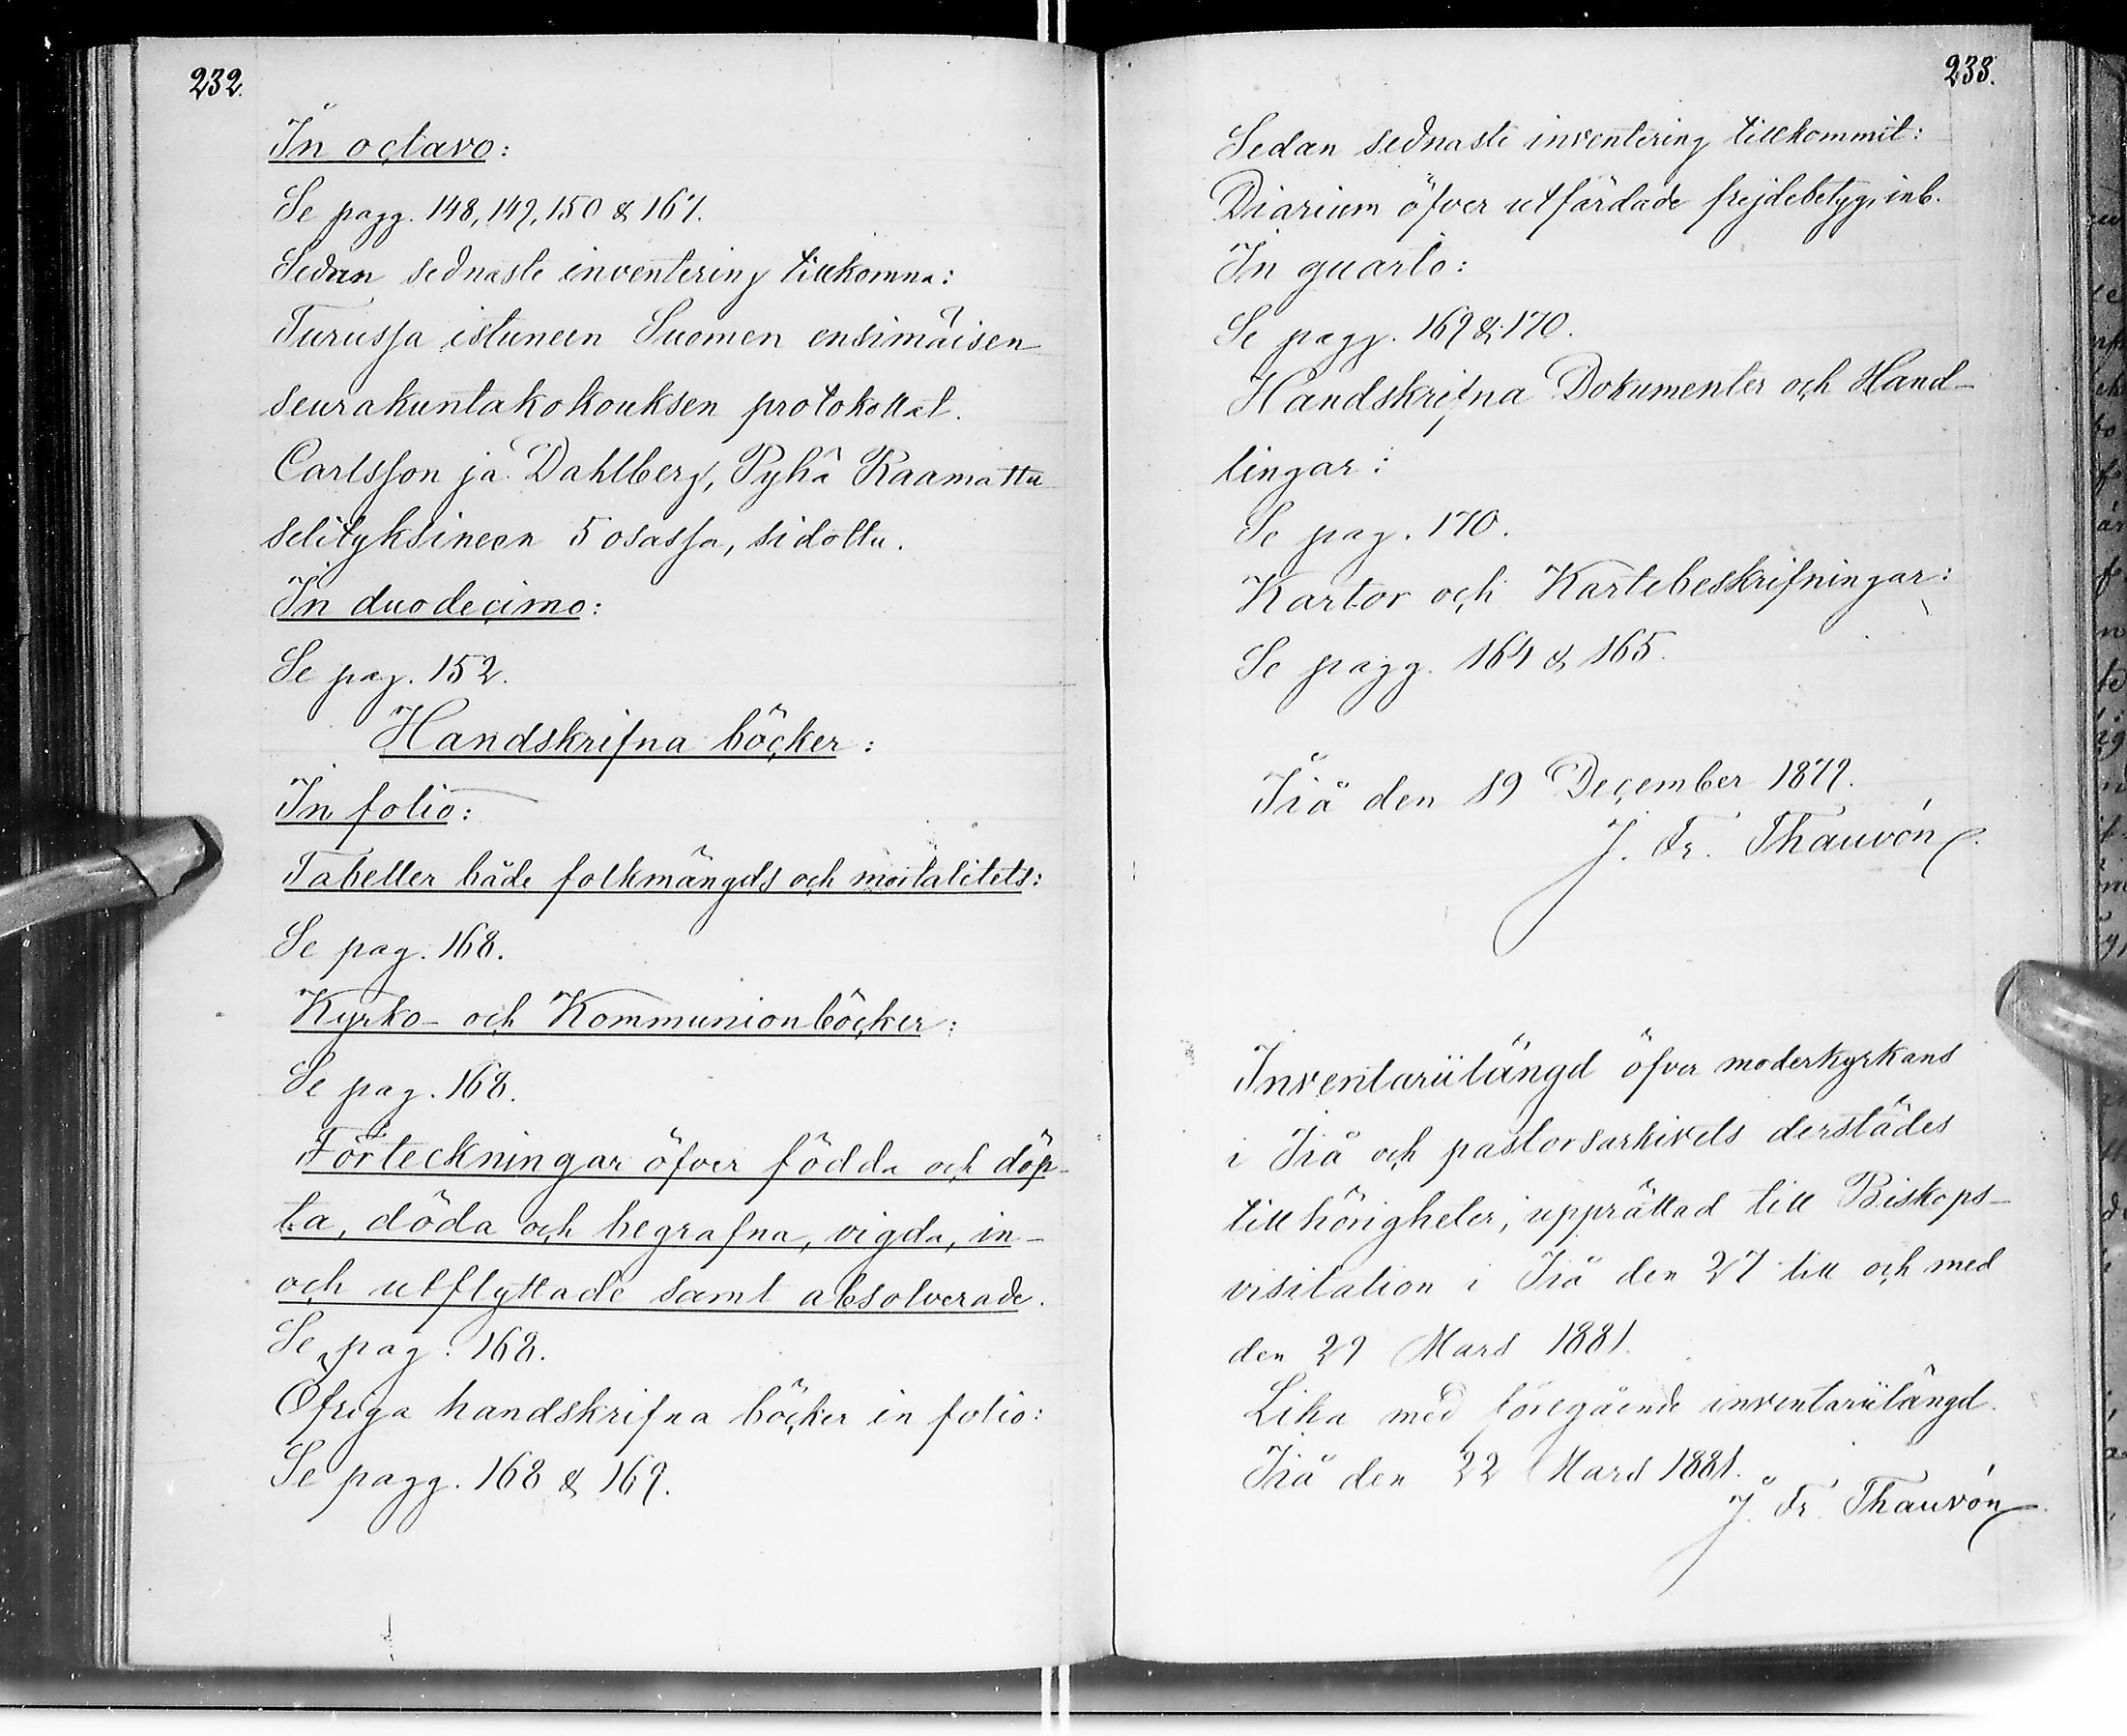 232.
In octavo:
Se pagg. 148, 149, 150 & 167.
Sedan sednaste inventering tillkomna:
Turussa istuneen Suomen ensimäisen
seurakuntakokouksen protokollat.
Carlsson ja Dahlberg, Pyhä Raamattu
selityksineen 5 osassa, sidottu.
In duodecimo:
Se pag. 152.
Handskrifna böcker:
In folio:
Tabeller både folkmängds och mortalitets:
Se pag. 168.
Kyrko- och Kommunionböcker:
Se pag. 168.
Förteckningar öfver födda och döp-
ta, döda och begrafna, vigda, in-
och utflyttade samt absolverade.
Se pag. 168.
Öfriga handskrifna böcker in folio:
Se pagg. 168 & 169.
233.
Sedan sednaste inventering tillkommit:
Diarium öfver utfärdade frejdebetyg, inb.
In quarto:
Se pagg. 169 & 170.
Handskrifna Dokumenter och Hand-
lingar:
Se pag. 170.
Kartor och Kartebeskrifningar:
Se pagg. 164 & 165.
Ijå den 19 December 1879.
J. Fr. Thauvón
Inventariilängd öfver moderkyrkans
i Ijå och pastorsarkivets derstädes
tillhörigheter, upprättad till Biskops-
visitation i Ijå den 27 till och med
den 29 Mars 1881.
Lika med föregående inventariilängd.
Ijå den 22 Mars 1881.
J. Fr. Thauvón